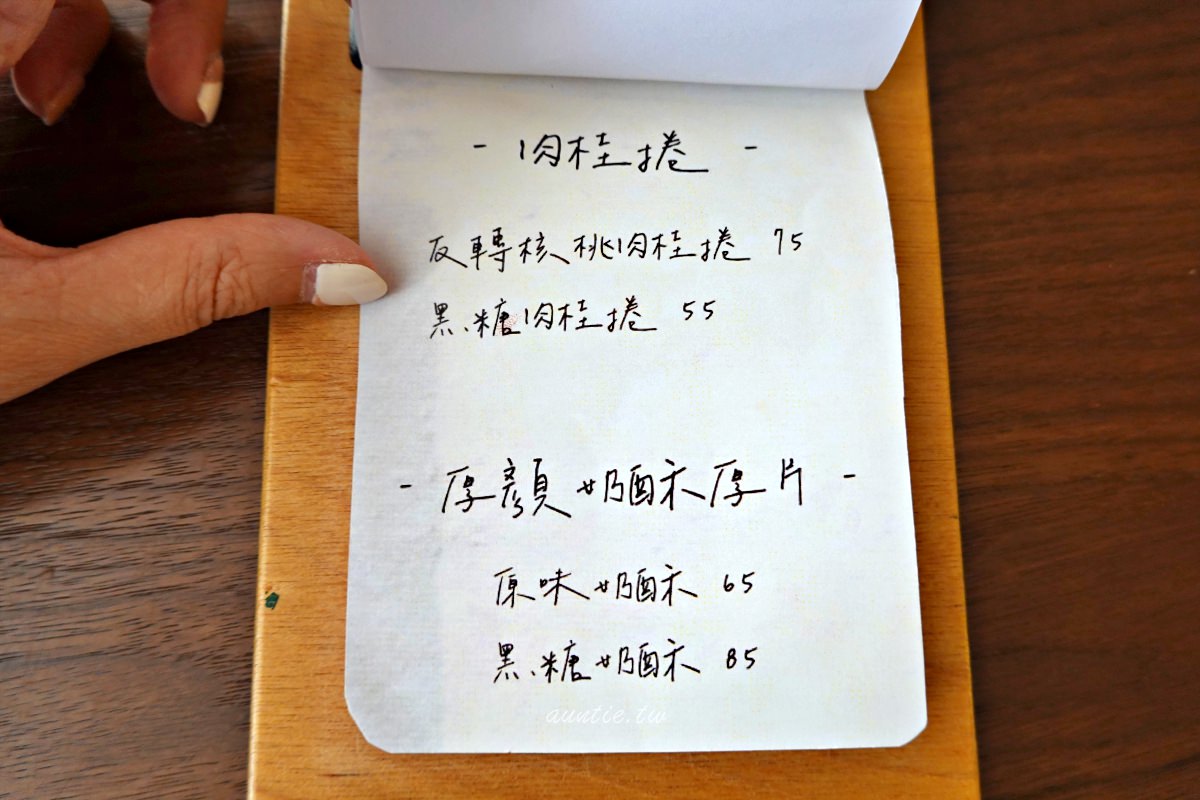 - 肉桂捲 -
反轉核桃肉桂捲 75
黑糖肉桂捲 55
- 厚顏奶酥厚片 -
原味奶酥 65
黑糖奶酥 85
auntie.tw